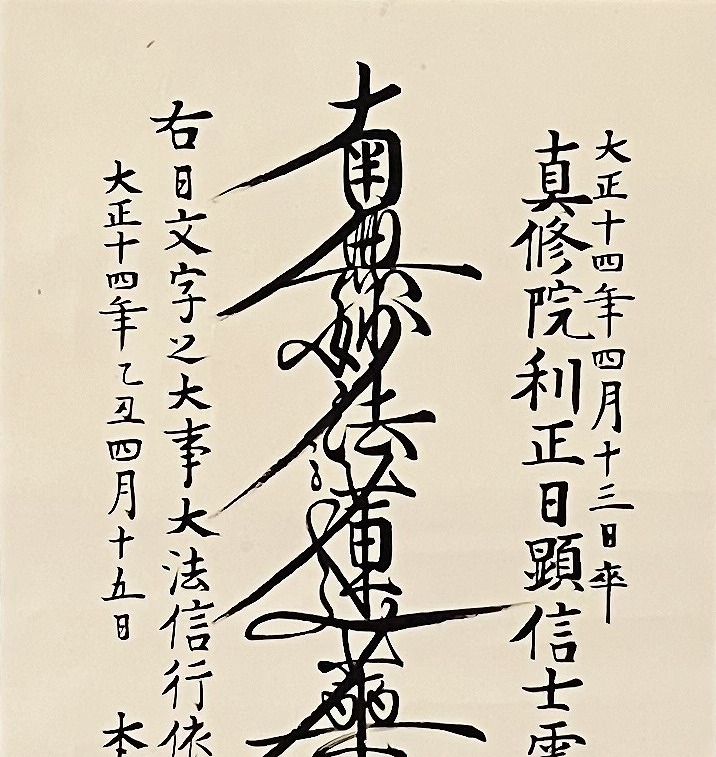 大正十四年四月十三日卒
真修院利正日顕信士霊
南無妙法蓮華
右日文字之大事大法信行依
大正十四年乙丑四月十五日 本